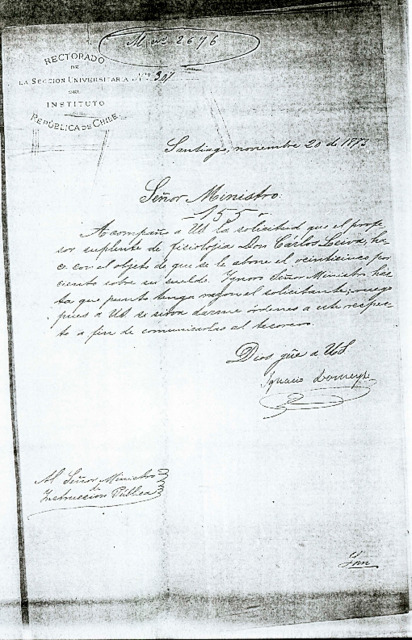 RECTORADO
DE
LA SECCION UNIVERSITARIA Nº 307
DEL
INSTITUTO
REPÚBLICA DE CHILE
2676
Santiago, noviembre 20 de 1873
Señor Ministro:
155
Acompaño a US la solicitud que el profe-
sor suplente de fisiolojia Don Carlos Leiva, ha-
ce con el objeto de que se le abone el veinticinco por
ciento sobre su sueldo. Ignoro Señor Ministro has-
ta que punto tenga razon el solicitante, ruego
pues a US se sirva darme órdenes a este respec-
to a fin de comunicarlas al tesorero.
Dios gûe a US
Ignacio Domeyko
Al Señor Ministro
de
Instruccion Pública